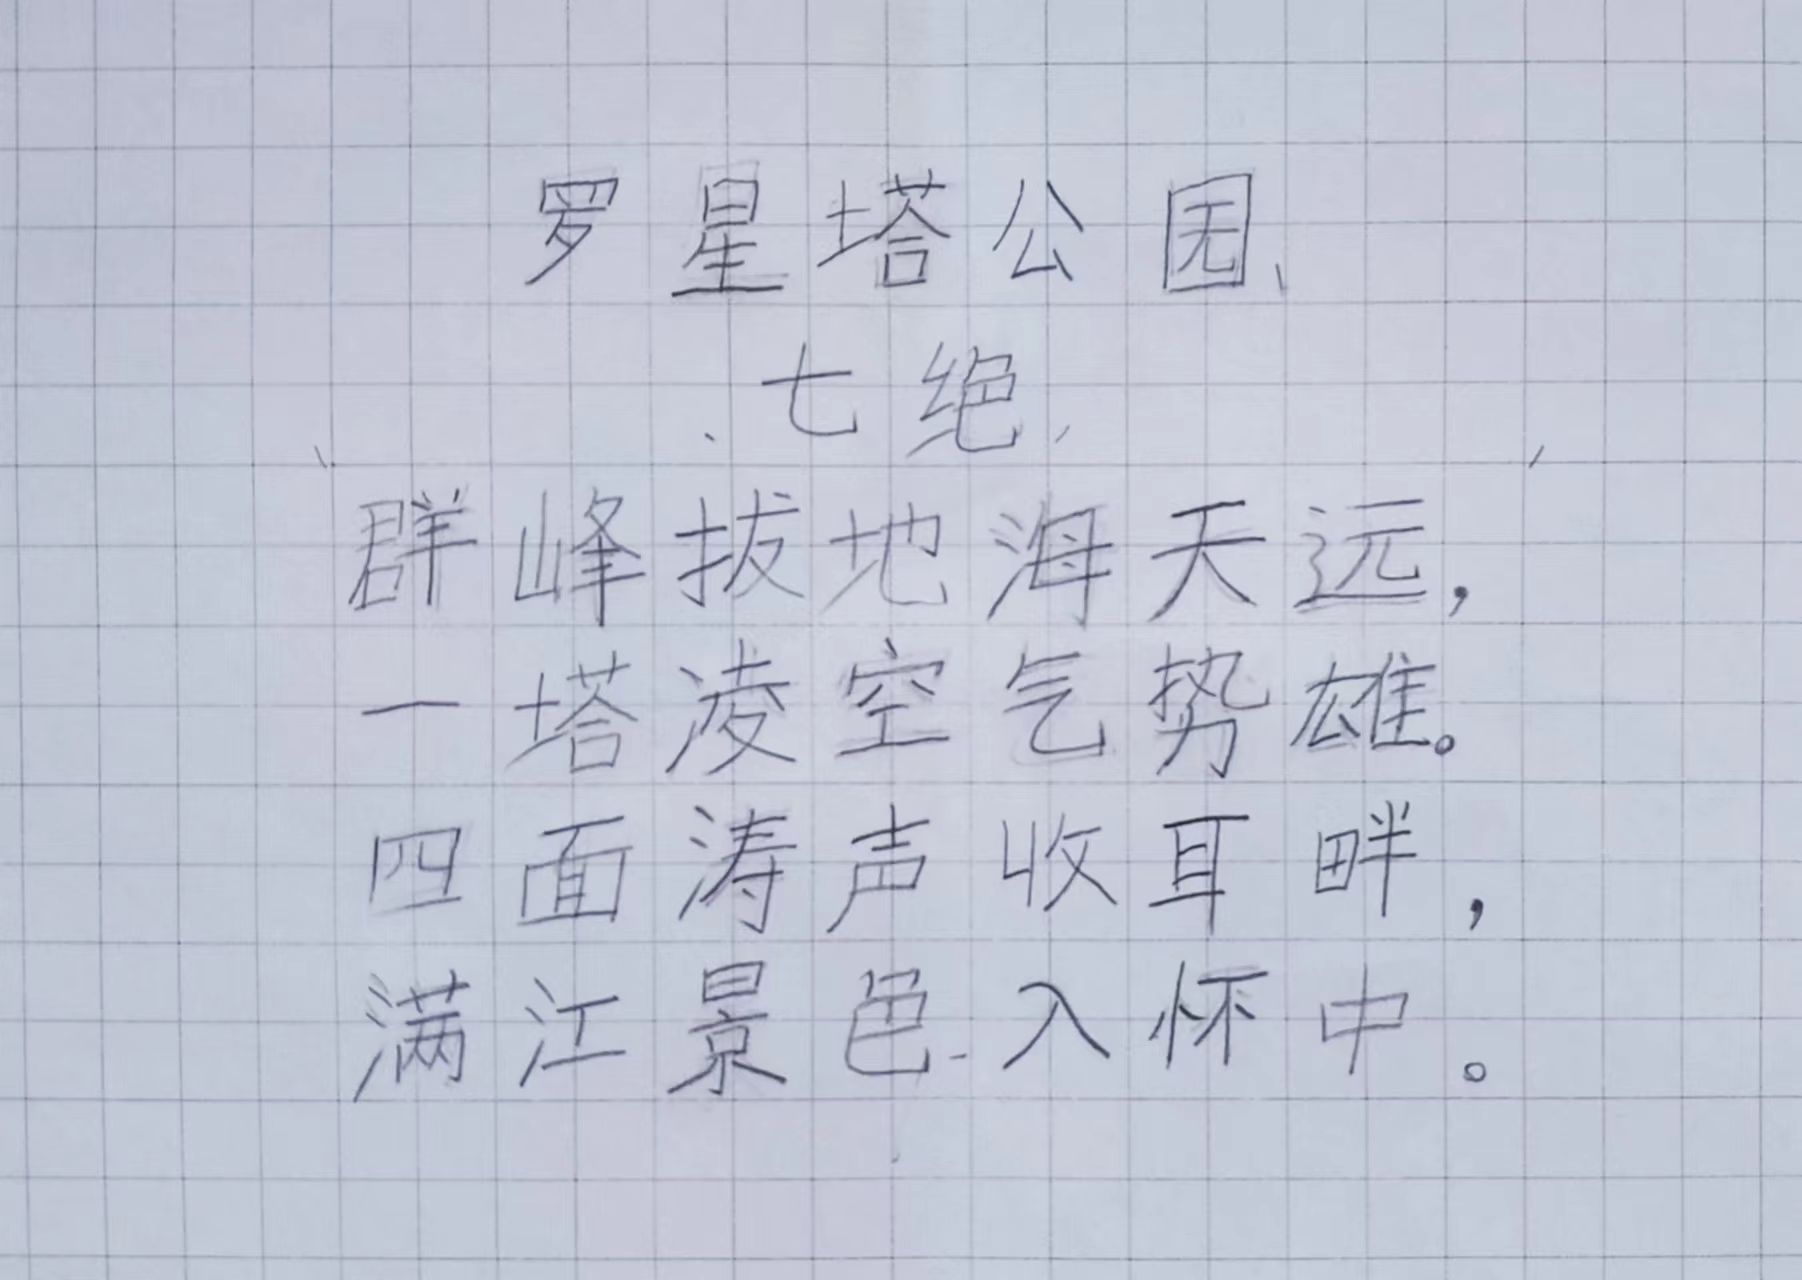 罗星塔公园
七绝
群峰拔地海天远，
一塔凌空气势雄。
四面涛声收耳畔，
满江景色入怀中。